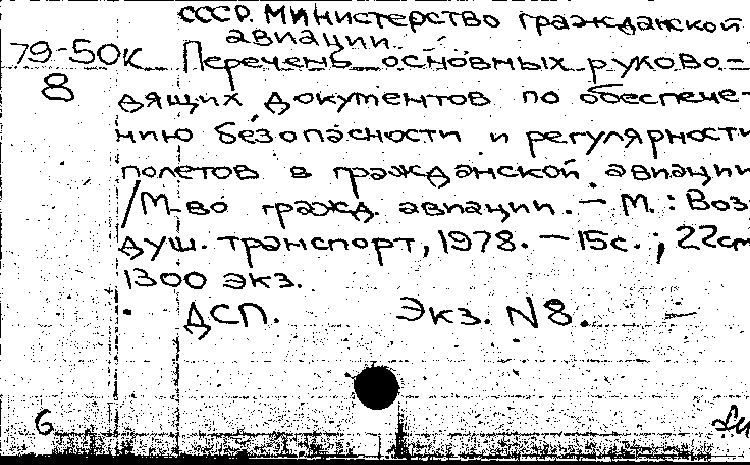 СССР. Министерство гражданской
авиации.
79-50к Перечень основных руково-
8 дящих документов по обеспече-
нию безопасности и регулярности
полетов в гражданской авиации
/М-во гражд. авиации. – М.: Воз-
душ. транспорт, 1978. – 15с.; 22см
1300 экз.
ДСП. Экз. N8.
6